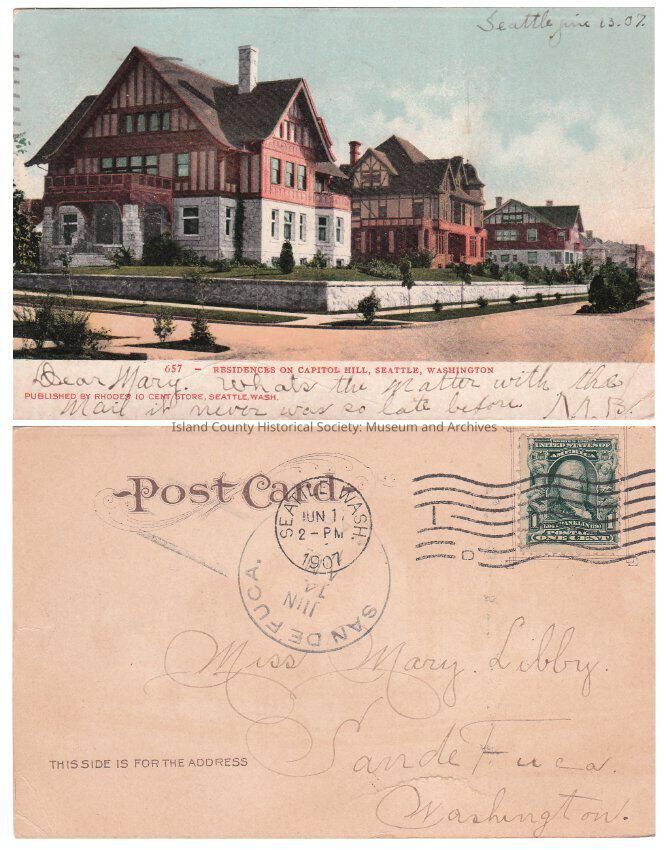 Seattle June 13. 07.
657 - RESIDENCES ON CAPITOL HILL, SEATTLE, WASHINGTON
Dear Mary. Whats the matter with the
PUBLISHED BY RHODES 10 CENT STORE, SEATTLE, WASH.
Mail it never was so late before
Island County Historical Society: Museum and Archives
Post Card.
SEATTLE, WASH.
JUN 1
2-PM
1907
JUN
14
SAN DE FUCA.
SERIES 1902
UNITED STATES OF
AMERICA
1 FRANKLIN 1
POSTAGE
ONE CENT
Miss Mary. Libby.
San de Fuca.
THIS SIDE IS FOR THE ADDRESS
Washington.